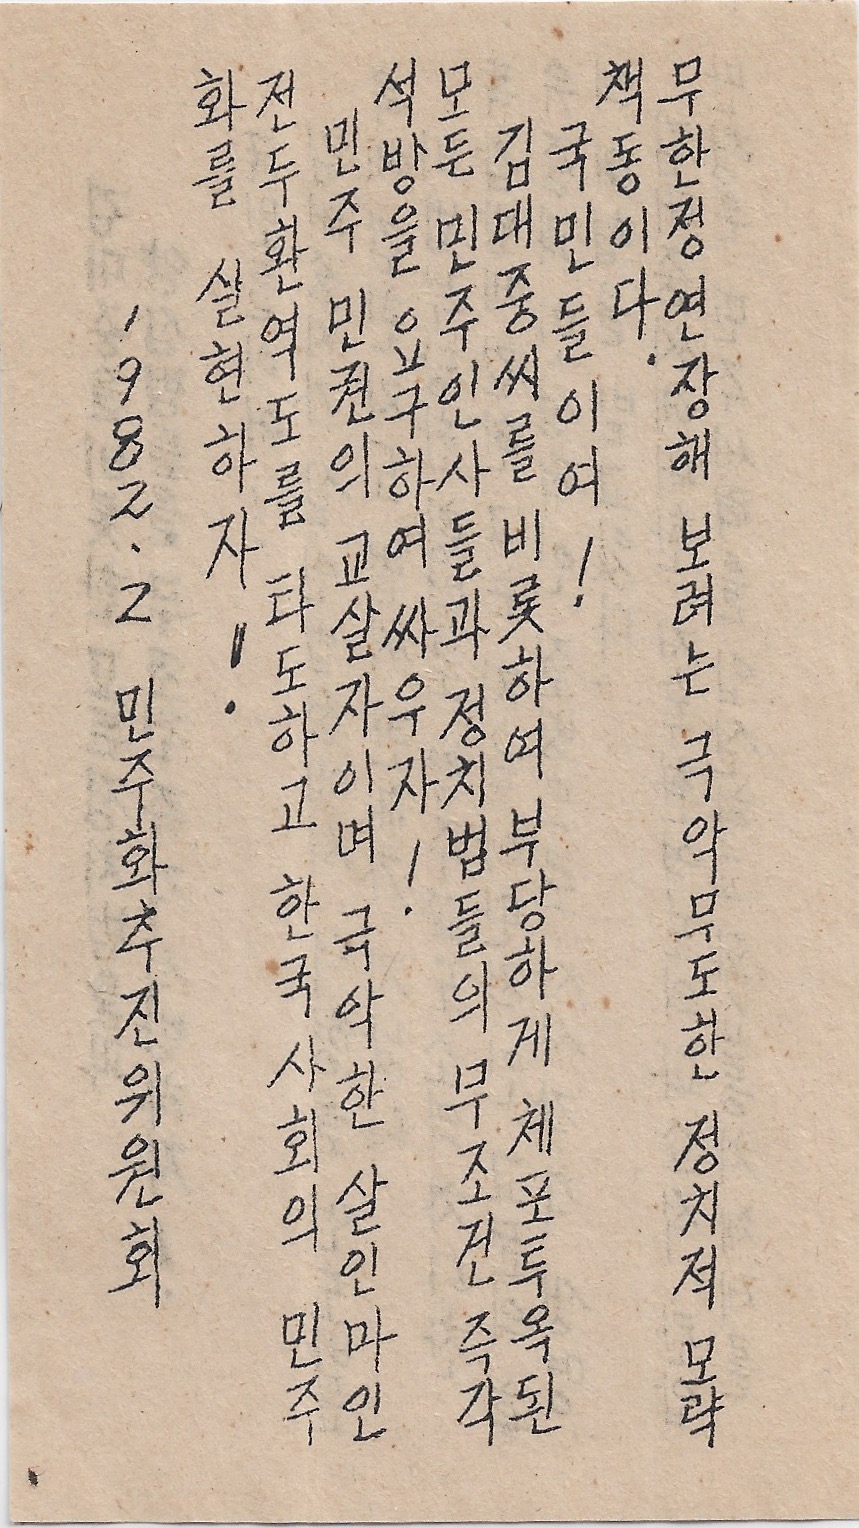 무한정 연장해 보려는 극악무도한 정치적 모략
책동이다.
국민들이여!
김대중씨를 비롯하여 부당하게 체포투옥된
모든 민주인사들과 정치범들의 무조건 즉각
석방을 요구하여 싸우자!
민주 민권의 교살자이며 극악한 살인마인
전두환역도를 타도하고 한국사회의 민주
화를 실현하자!
1982.2 민주화추진위원회